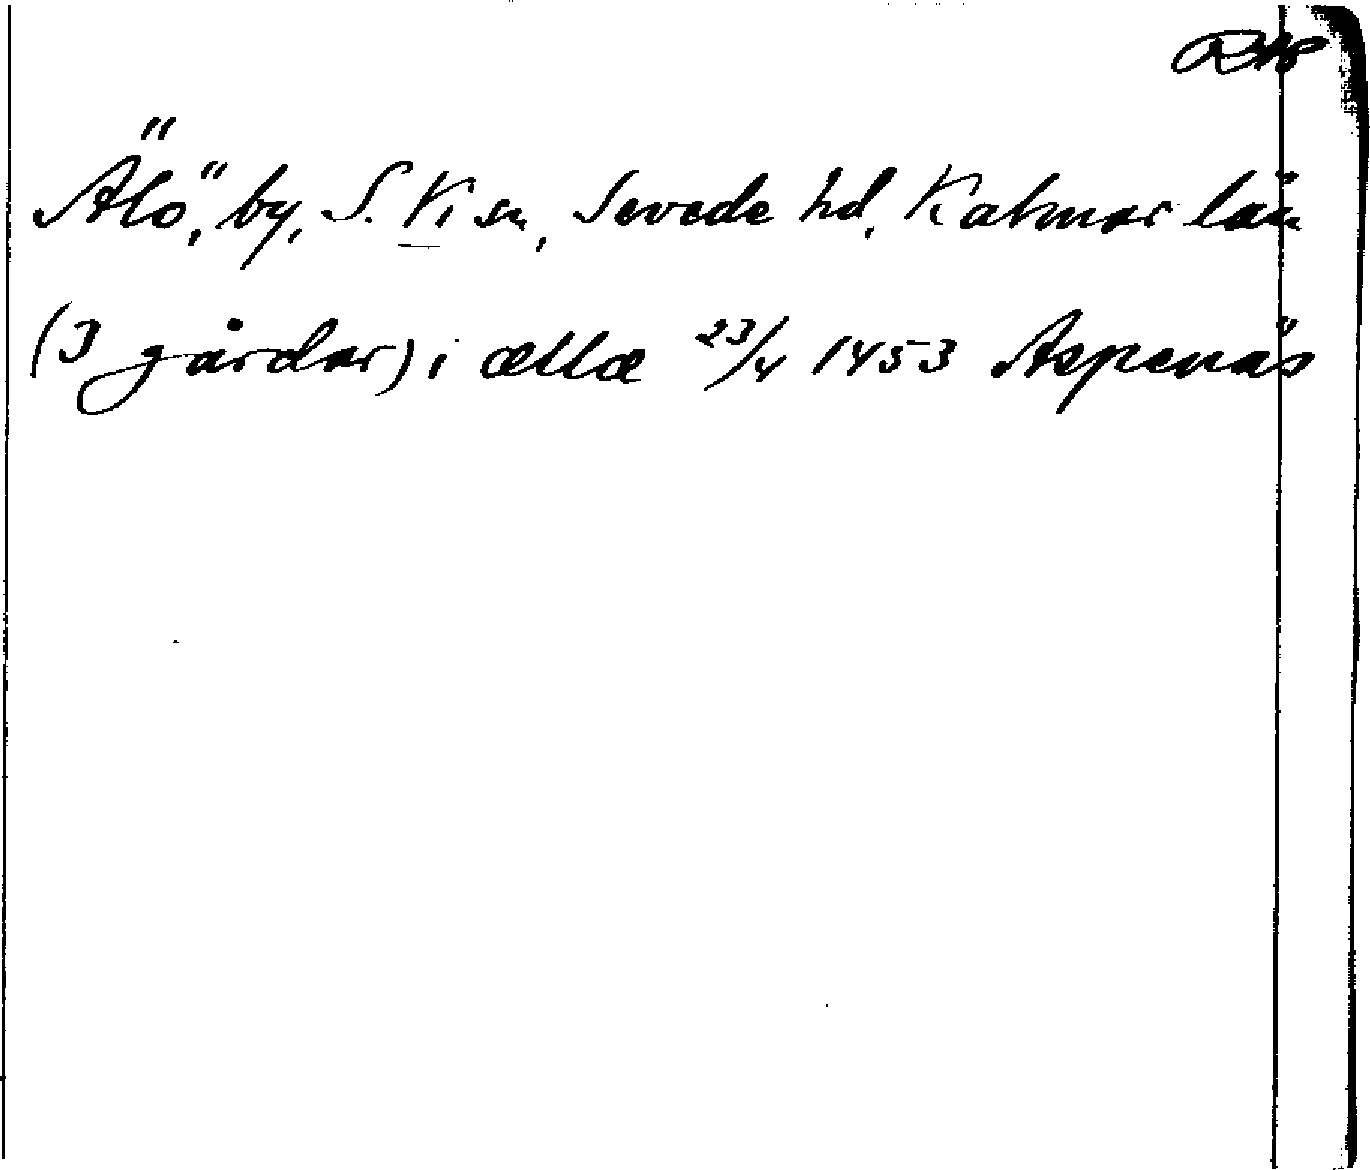 Älö, by, S. Vi sn, Sevede hd, Kalmar län
(3 gårdar) i ællæ 23/4 1453 Aspenäs